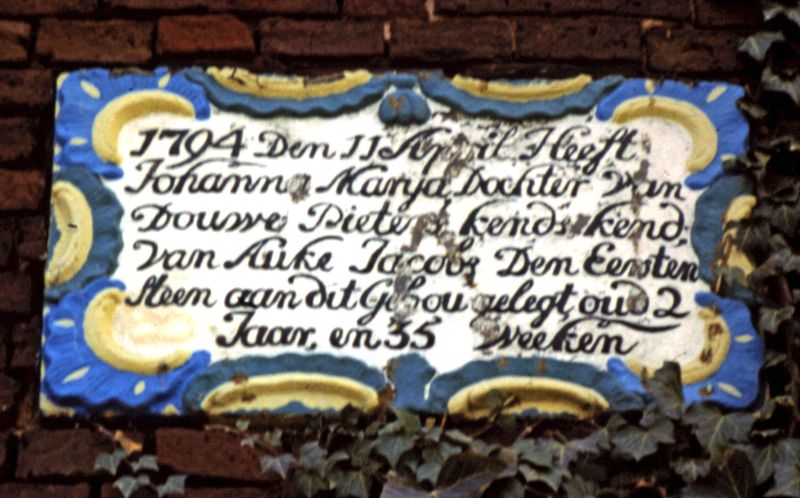 1794 Den 11 April Heeft
Johanna Marya Dochter Van
Douwe Pieters kends kend,
Van Auke Jacobs Den Eersten
steen aan dit Gebou gelegt, oud 2
Jaar, en 35 Weeken